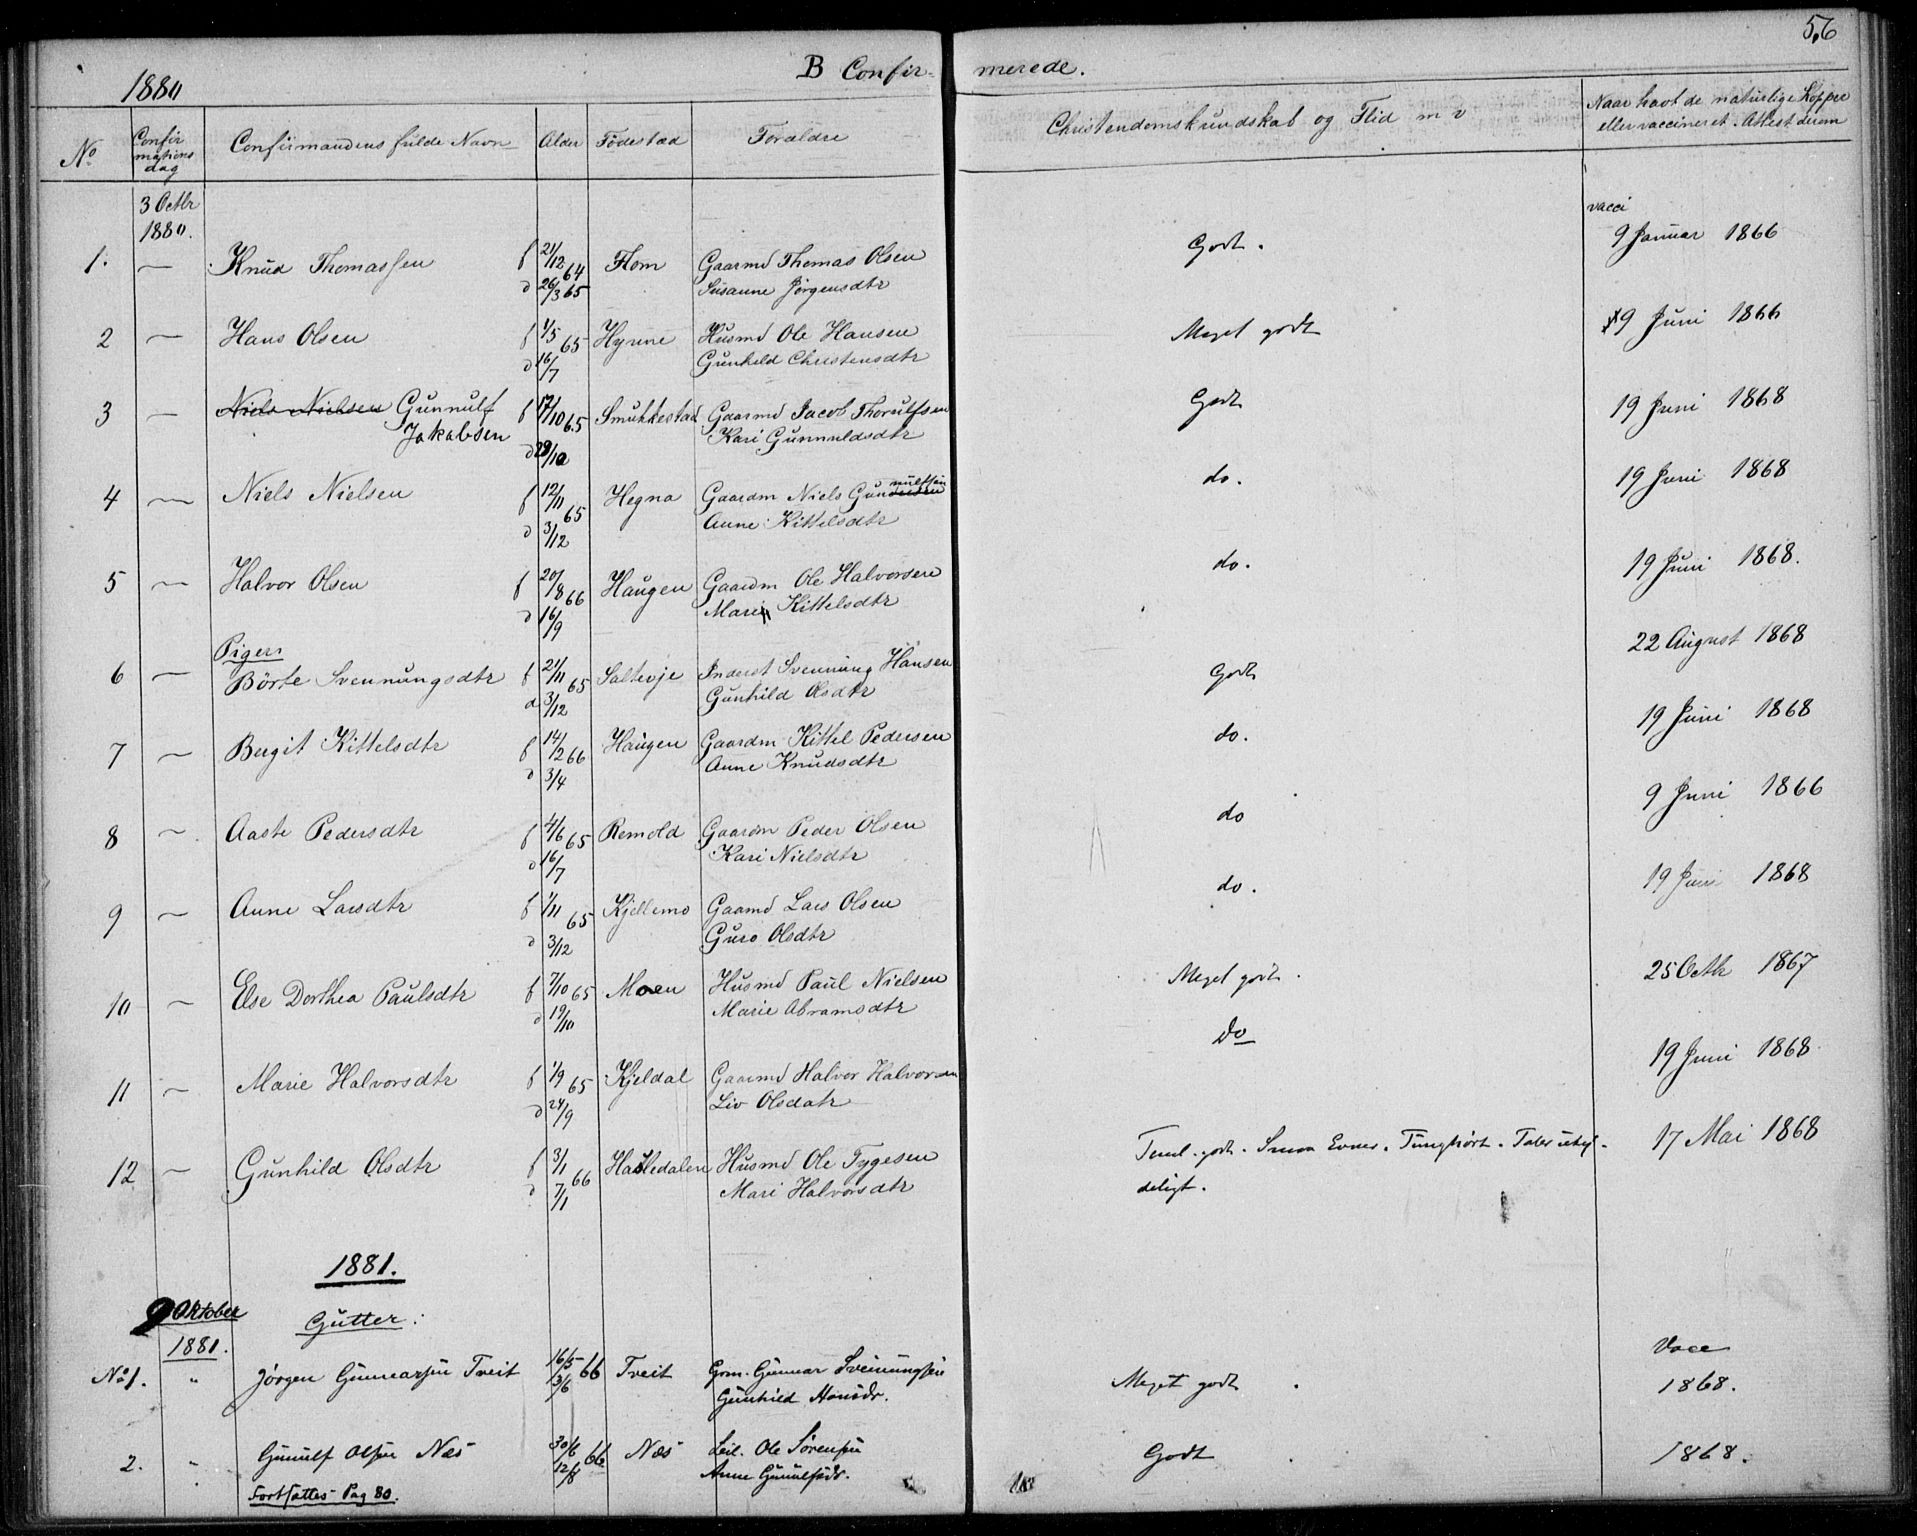 56
1880
B Confir-
merede.
No
Confirmations dag
Confirmandens fulde Navn
Alder
Fødested
Forældre
Christendomskundskab og Flid m v
Naar havt de naturlige Kopper
eller vaccineret. Attest derom
3 Octbr
1880.
vacci
1. — Knud Thomassen f 21/12 64 Flom Gaarmd Thomas Olsen Godt. 9 Januar 1866
d 26/3 65 Susanne Jörgensdtr
2 — Hans Olsen f 1/5 65 Hynne Husmd Ole Hansen Meget godt 9 Juni 1866
d 16/7 Gunhild Christensdtr
3 — Niels Nielsen Gunnulf f 17/10 65 Smukkestad Gaarmd Jacob Thorulfsen Godt 19 Juni 1868
Jakobsen d 29/10 Kari Gunnuldsdtr
4 — Niels Nielsen f 12/11 65 Hegna Gaardm Niels Gunnulfsen do. 19 Juni 1868
d 3/12 Anne Kittelsdtr
5 — Halvor Olsen f 20/8 66 Haugen Gaardm Ole Halvorsen do. 19 Juni 1868.
d 16/9 Mari Kittelsdtr
Piger
6 — Börte Svennungsdtr f 21/11 65 Inderst Svennung Hansen Godt 22 August 1868
d 3/12 Gunhild Olsdtr
7 — Bergit Kittelsdtr f 14/2 66 Haugen Gaardm Kittel Pedersen do. 19 Juni 1868
d 3/4 Anne Knudsdtr
8 — Aaste Pedersdtr f 4/6 65 Remold Gaardm Peder Olsen do 9 Juni 1866
d 16/7 Kari Nielsdtr
9 — Anne Larsdtr f 1/11 65 Kjellemo Gaarmd Lars Olsen do. 19 Juni 1868
d 3/12 Guro Olsdtr
10 — Else Dorthea Paulsdtr f 7/10 65 Moen Husmd Paul Nielsen Meget godt. 25 Octbr 1867
d 19/10 Marie Abramsdtr
11 — Marie Halvorsdtr f 1/9 65 Kjeldal Gaarmd Halvor Halvorsen Do 19 Juni 1868
d 24/9 Liv Olsdatr
12 — Gunhild Olsdtr f 3/1 66 Husmd Ole Tygesen Teml. godt. Smaa Evner. Tunghørt. Taler uty- 17 Mai 1868
d 7/1 Mari Halvorsdtr deligt.
1881.
9 Oktober
1881.
Gutter:
Vacc
No 1. " Jörgen Gunnarsen Tveit 16/5 66 Tveit Grm. Gunnar Sveinungsen Meget godt. 1868.
3/6 Gunhild Hansdr.
2. " Gunulf Olsen Næs 30/6 66 Næs Leil. Ole Sörensen Godt 1868.
12/8 Anne Gunulfsdr.
Fortsættes Pag 80.